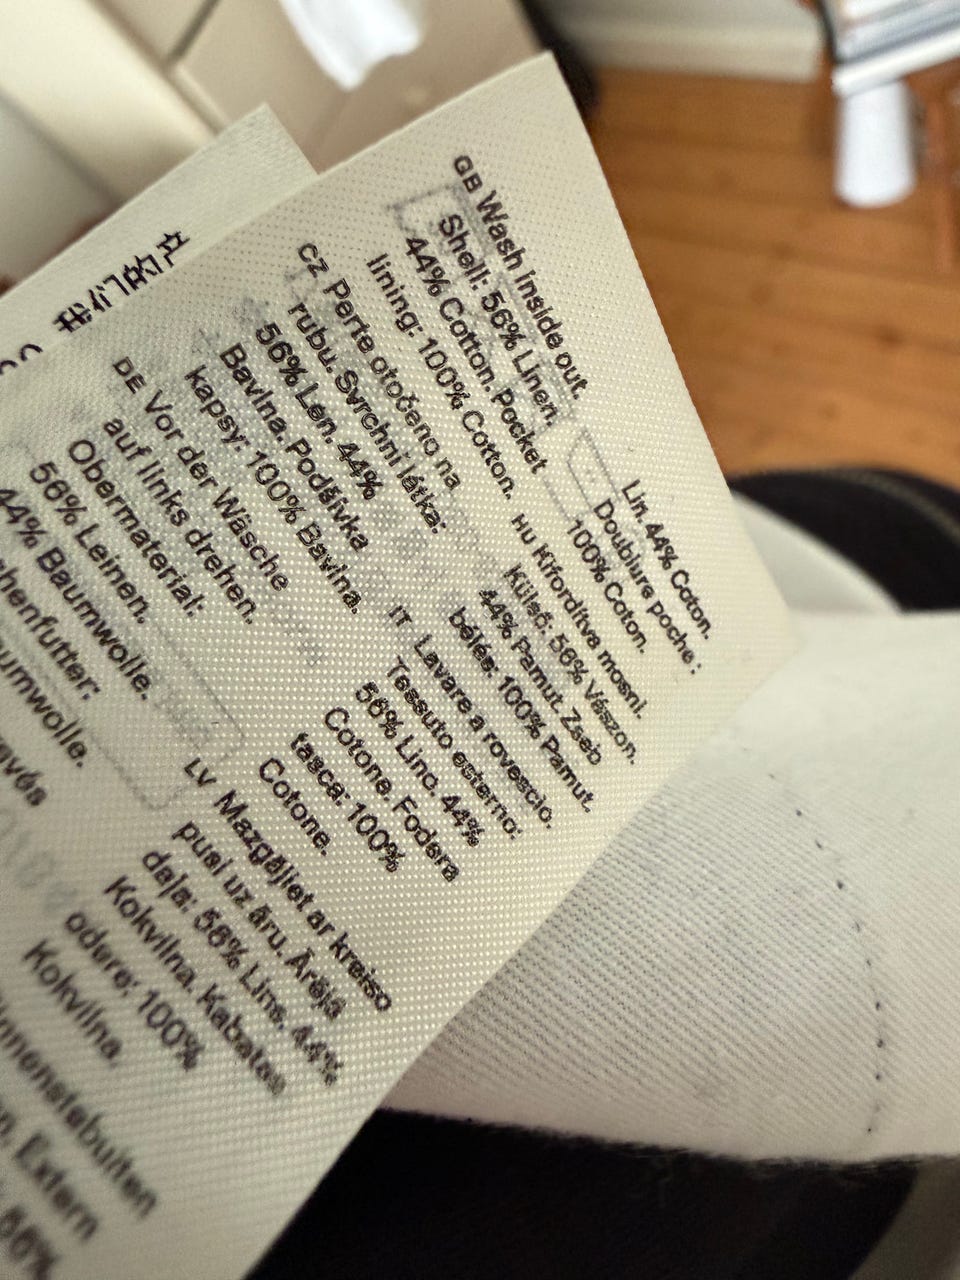 GB Wash inside out.
Shell: 56% Linen,
44% Cotton. Pocket
lining: 100% Cotton.
CZ Perte otočeno na
rubu. Svrchní látka:
56% Len. 44%
Bavlna. Podšívka
kapsy: 100% Bavlna.
DE Vor der Wäsche
auf links drehen.
Obermaterial:
56% Leinen.
44% Baumwolle.
henfutter:
umwolle.
Lin. 44% Coton.
Doublure poche :
100% Coton.
HU Kifordítva mosni.
Külső: 56% Vászon.
44% Pamut. Zseb
bélés: 100% Pamut.
IT Lavare a rovescio.
Tessuto esterno:
56% Lino. 44%
Cotone. Fodera
tasca: 100%
Cotone.
LV Mazgājiet ar kreiso
pusi uz āru. Ārējā
daļa: 56% Lins. 44%
Kokvilna. Kabatas
odere: 100%
Kokvilna.
nnenstebuiten
n. Extern
56%